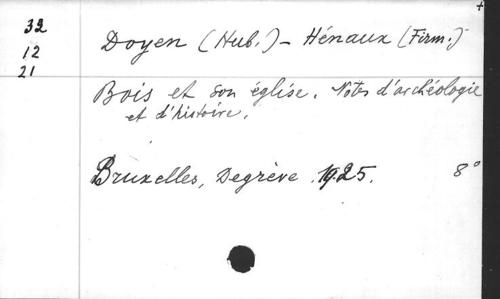 +
32
12
21
Doyen (Hub.) - Hénaux (Firm.)
Bois et son église. Notes d'archéologie
et d'histoire.
Bruxelles, Degrève. 1925. 8°